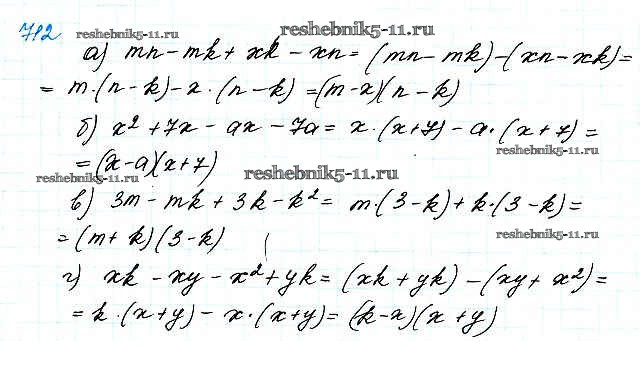 712 reshebnik5-11.ru reshebnik5-11.ru
а) mn - mk + xk - xn = (mn - mk) - (xn - xk) =
= m·(n - k) - x·(n - k) = (m - x)(n - k)
б) x² + 7x - ax - 7a = x·(x + 7) - a·(x + 7) =
reshebnik5-11.ru
= (x - a)(x + 7)
reshebnik5-11.ru reshebnik5-11.ru
в) 3m - mk + 3k - k² = m·(3 - k) + k·(3 - k) =
= (m + k)(3 - k)
reshebnik5-11.ru
г) xk - xy - x² + yk = (xk + yk) - (xy + x²) =
= k·(x + y) - x·(x + y) = (k - x)(x + y)